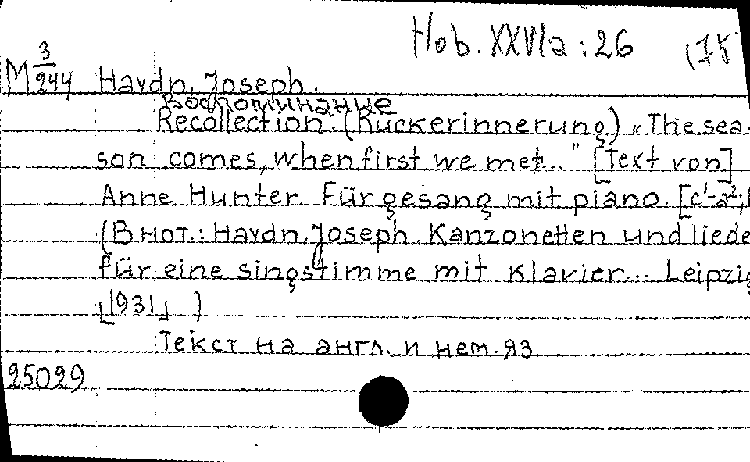 Hob. XXVIa : 26 (75
M 3/244 Haydn, Joseph.
Воспоминание
Recollection. (Rückerinnerung) „The sea-
son comes, when first we met..." [Text von]
Anne Hunter. Für gesang mit piano. [c¹-a²,
(В нот.: Haydn, Joseph. Kanzonetten und liede
für eine singstimme mit klavier... Leipzig
[1931] )
Текст на англ. и нем. яз
25029